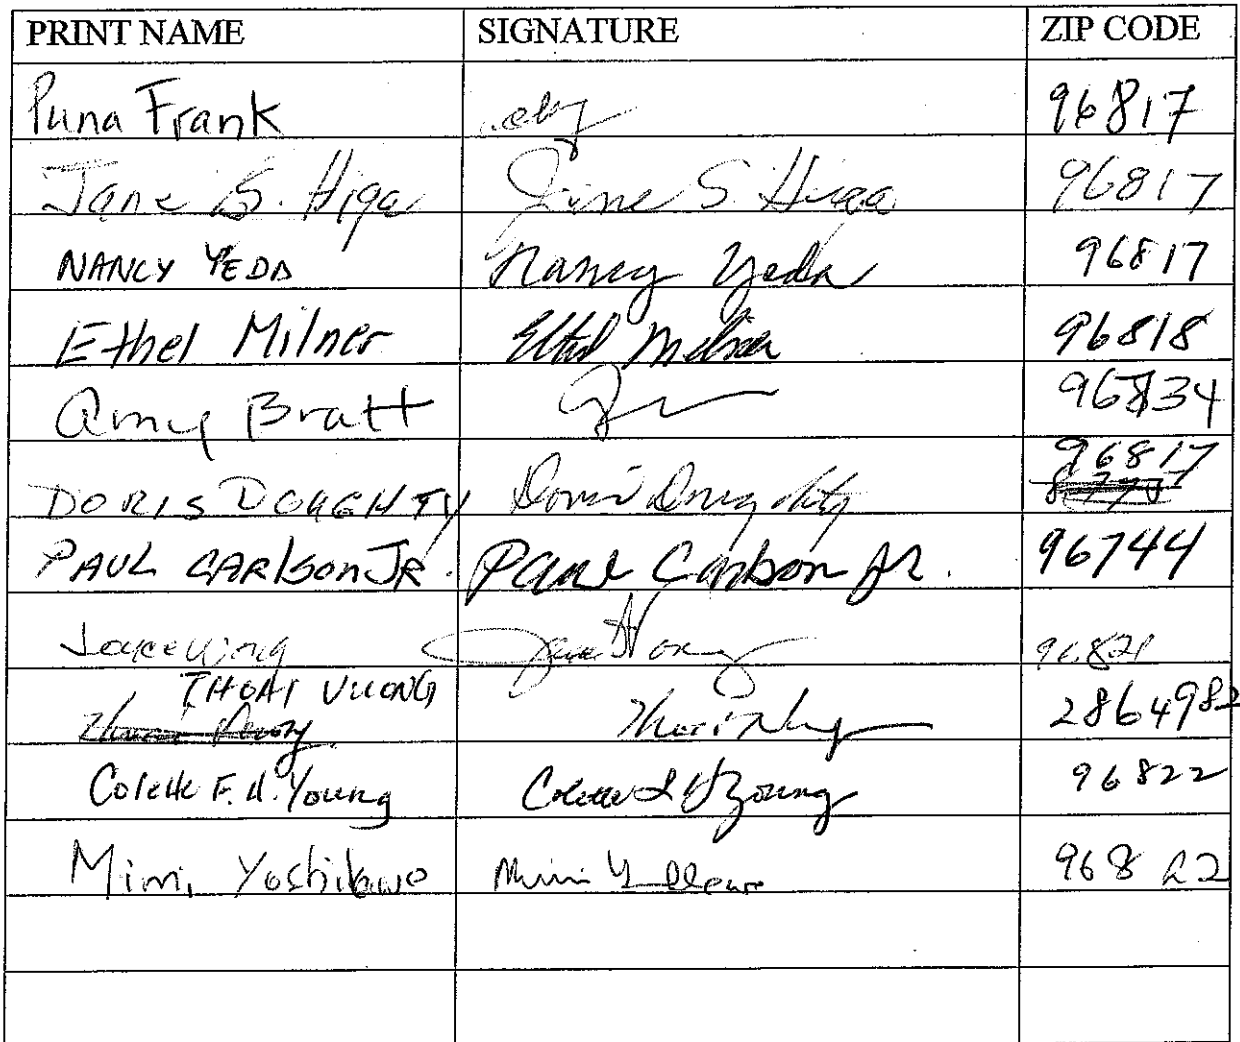 PRINT NAME SIGNATURE ZIP CODE
Puna Frank 96817
Jane S. Higa Jane S. Higa 96817
NANCY YEDA Nancy Yeda 96817
Ethel Milner Ethel Milner 96818
Amy Bratt 96734
96817
DORIS DOUGHTY Doris Doughty
PAUL CARLSON JR. Paul Carlson Jr. 96744
Joyce Wong Joyce Wong 96821
THOAI VUONG 2864982
Colette F. H. Young Colette F H Young 96822
Mimi 96822